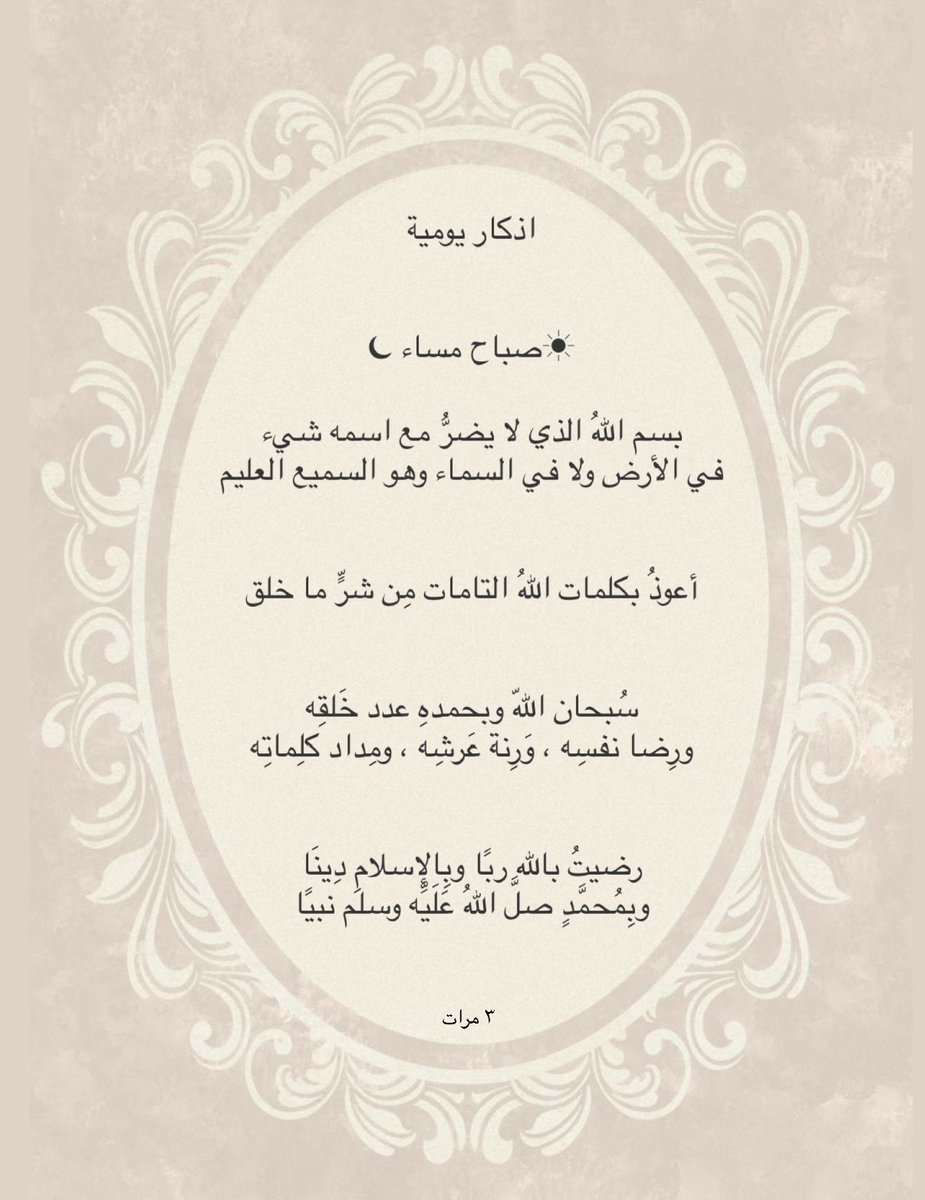 اذكار يومية
☀صباح مساء ⏾
بسم اللهُ الذي لا يضرُّ مع اسمه شيء
في الأرض ولا في السماء وهو السميع العليم
أعوذُ بكلمات اللهُ التامات مِن شرٍّ ما خلق
سُبحان اللهّ وبحمدهِ عدد خَلقِه
ورِضا نفسِه ، وَرِنة عَرشِه ، ومِداد كلِماتِه
رضيتُ بالله ربًا وبِالإسلامِ دِينَا
وبِمُحمَّدٍ صلَّ اللهُ عَلَيِّه وسلَم نبيًا
٣ مرات